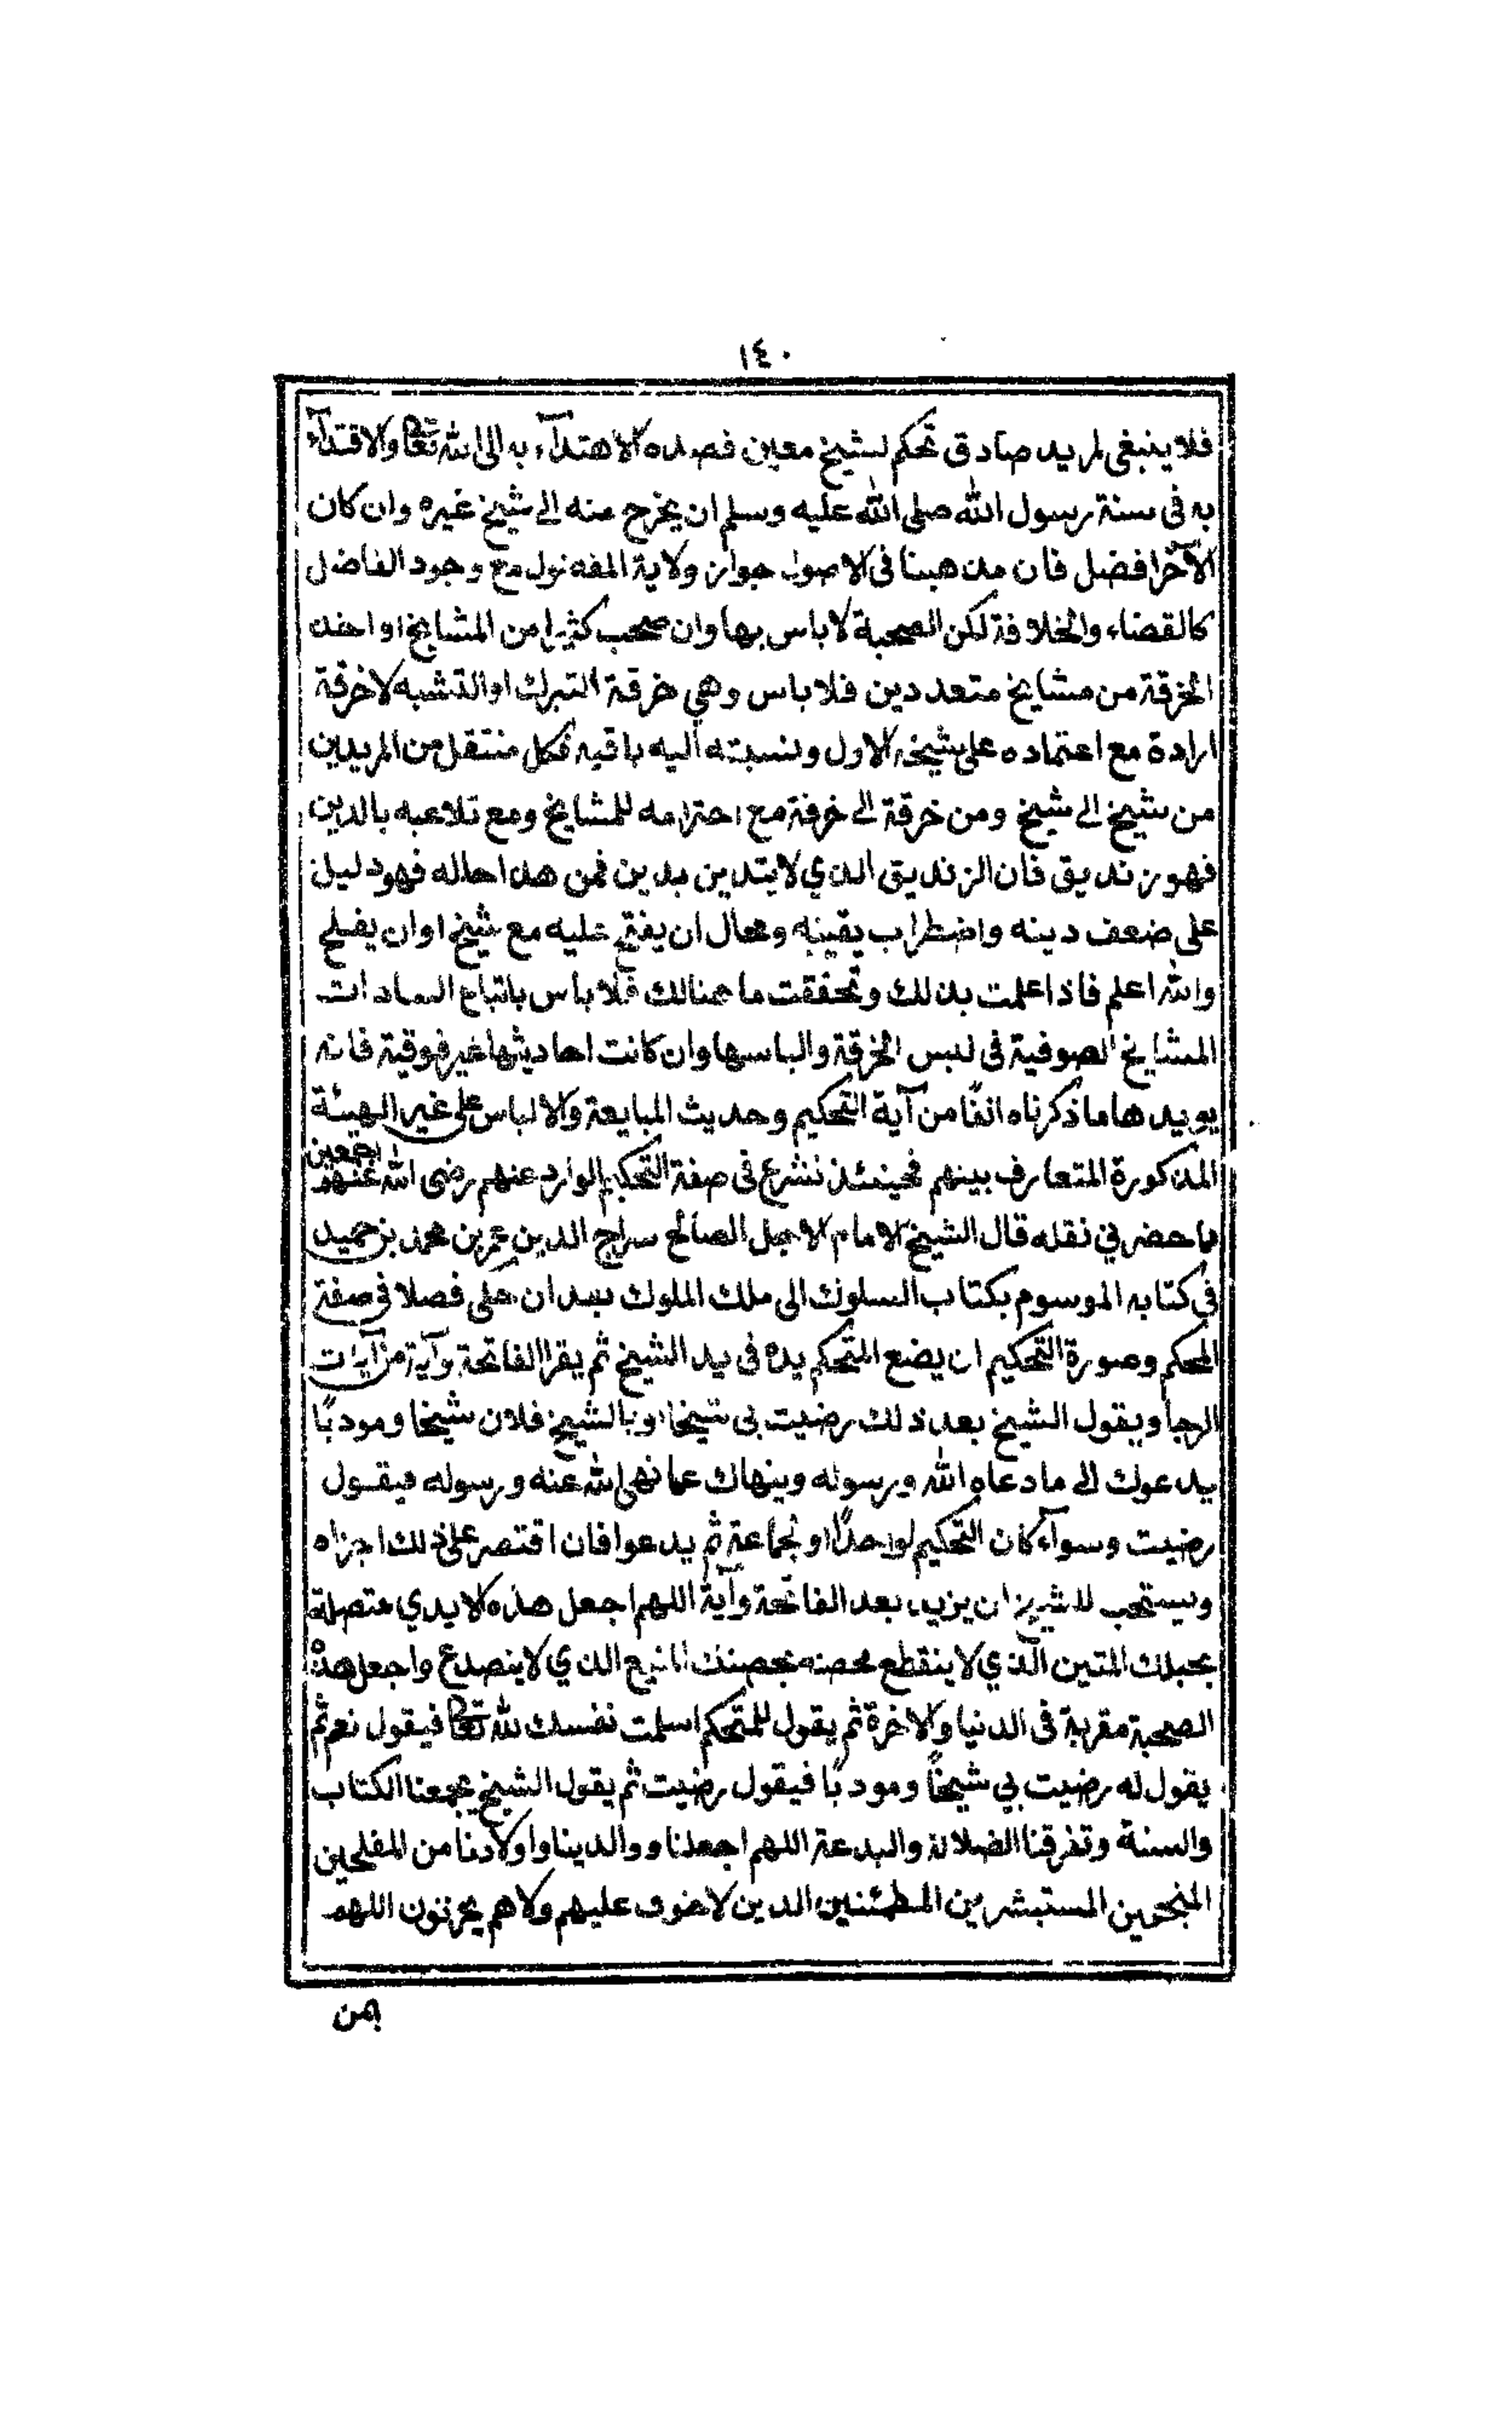 ١٤٠
فلا ينبغي لمريد صادق تحكم لشيخ معين قصده الاهتدآء به الى الله تعالى والاقتدآء
به فى سنة رسول الله صلى الله عليه وسلم ان يخرج منه الى شيخ غيره وان كان
الآخر افضل فان مذهبنا فى الاصول جواز ولاية المفضول مع وجود الفاضل
كالقضاء والخلافة لكن الصحبة لا باس بها وان صحب كثيرا من المشايخ او اخذ
الخرقة من مشايخ متعددين فلا باس وهي خرقة التبرك او التشبه لا خرقة
ارادة مع اعتماده على شيخه الاول ونسبته اليه باقيه فكل منتقل من المريدين
من شيخ الى شيخ ومن خرقة الى خرقة مع احترامه للمشايخ ومع تلاعبه بالدين
فهو زنديق فان الزنديق الذي لا يتدين بدين فمن هذا حاله فهو دليل
على ضعف دينه واضطراب يقينه ومحال ان يفتح عليه مع شيخ او ان يفلح
والله اعلم فاذا علمت بذلك وتحققت ما هنالك فلا باس باتباع السادات
المشايخ الصوفية فى لبس الخرقة والباسها وان كانت احاديثها غير فوقية فانه
يويدها ما ذكرناه انفًا من آية التحكيم وحديث المبايعة والالباس على غير الهيئة
المذكورة المتعارف بينهم فحينئذ نشرع فى صفة التحكيم الوارد عنهم رضى الله عنهم اجمعين
ما حضر في نقله قال الشيخ الامام الاجل الصالح سراج الدين عمر بن محمد بن حميد
في كتابه الموسوم بكتاب السلوك الى ملك الملوك بعد ان حكى فصلا في صفة
المحكم وصورة التحكيم ان يضع المتحكم يده فى يد الشيخ ثم يقرا الفاتحة وآية من آيات
الرجا ويقول الشيخ بعد ذلك رضيت بى شيخا او بالشيخ فلان شيخا ومودبًا
يدعوك الى ما دعاه الله ورسوله وينهاك عما نهى الله عنه ورسوله فيقول
رضيت وسوآء كان التحكيم لواحدًا او لجماعة ثم يدعوا فان اقتصر على ذلك اجزاه
ويستحب للشيخ ان يزيد بعد الفاتحة وآية اللهم اجعل هذه الايدي متصلة
بحبلك المتين الذي لا ينقطع محصنه بحصنك المنيع الذي لا ينصدع واجعل هذه
الصحبة مقربة فى الدنيا والاخرة ثم يقول للمتحكم اسلمت نفسك لله تعالى فيقول نعم ثم
يقول له رضيت بي شيخًا ومودبًا فيقول رضيت ثم يقول الشيخ يجمعنا الكتاب
والسنة وتفرقنا الضلالة والبدعة اللهم اجعلنا ووالدينا واولادنا من المفلحين
المنجحين المستبشرين المطمئنين الذين لا خوف عليهم ولا هم يحزنون اللهم
من